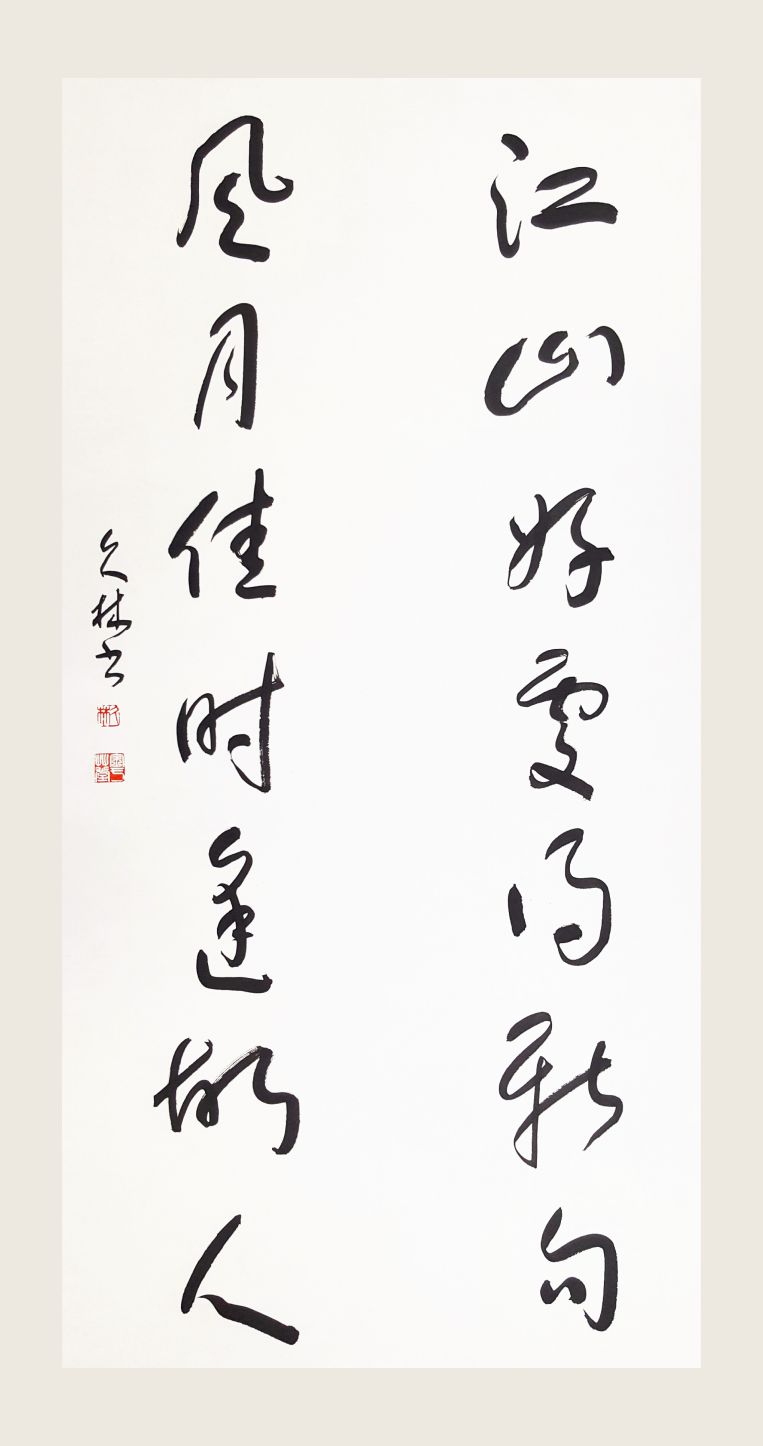 江山好處得新句
風月佳时逢故人
久林书